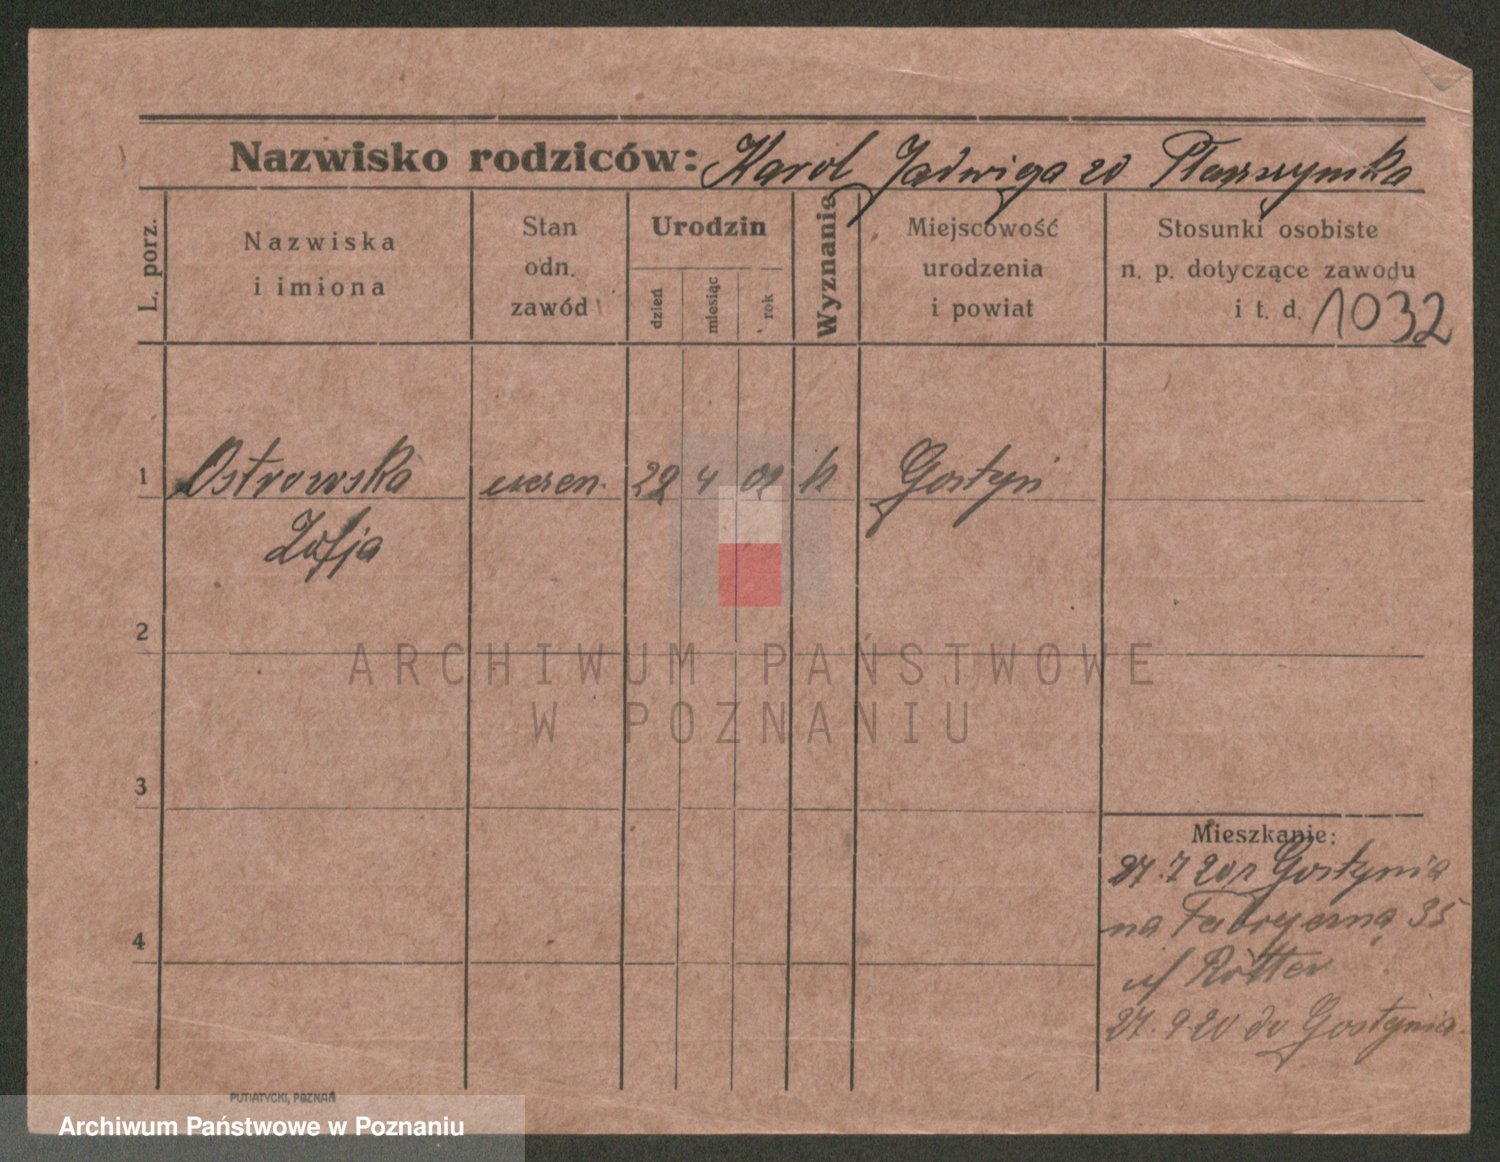 Nazwisko rodziców: Karol Jadwiga zd
L. porz.
Nazwiska
i imiona
Stan
odn.
zawód
Urodzin
dzień
miesiąc
rok
Wyznanie
Miejscowość
urodzenia
i powiat
Stosunki osobiste
n. p. dotyczące zawodu
i t. d. 1032
1 Ostrowska 4 k Gostyń
Zofja
2
ARCHIWUM PAŃSTWOWE
W POZNANIU
3
Mieszkanie:
27.7 20 z Gostynia
na Fabryczną 35
4
u/ Rotter
27.9 20 do Gostynia.
PUTIATYCKI, POZNAŃ
Archiwum Państwowe w Poznaniu